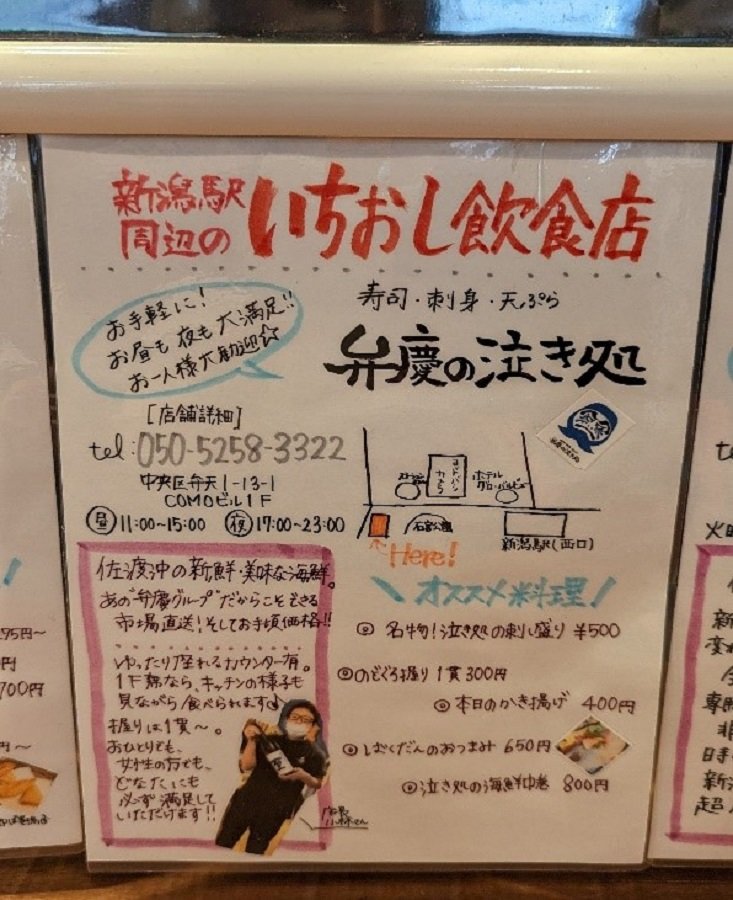 新潟駅
周辺の
いちおし飲食店
お手軽に!
お昼も夜も大満足!!
お一人様大歓迎☆
寿司・刺身・天ぷら
弁慶の泣き処
[店舗詳細]
tel:050-5258-3322
中央区弁天1-13-1
COMOビル1F
昼 11:00~15:00 夜 17:00~23:00
ヨドバシ
カメラ
ホテル
グローバルビュー
石宮公園
新潟駅(西口)
↑Here!
佐渡沖の新鮮・美味な海鮮。
あの"弁慶グループ"だからこそできる
市場直送!そしてお手頃価格!!
ゆったり座れるカウンター有。
1F席なら、キッチンの様子も
見ながら食べられます♪
握りは1貫~。
おひとりでも、
女性の方でも、
どなたにも
必ず満足して
いただけます!!
店長
小林さん
\オススメ料理/
◎名物!泣き処の刺し盛り ¥500
◎のどぐろ握り 1貫300円
◎本日のかき揚げ 400円
のおつまみ 650円
◎泣き処の海鮮中巻 800円
tel
火曜
595円~
700円
円~